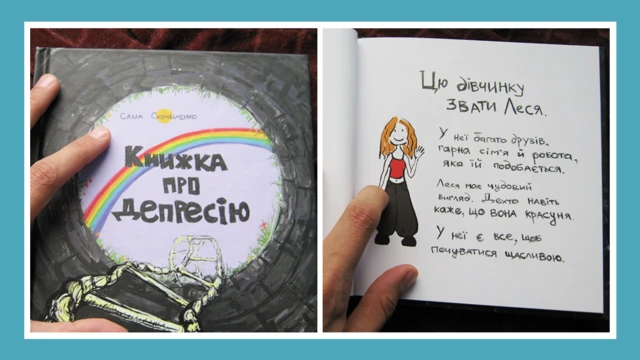 Саша Скочиленко
Книжка
про
депресію
Цю дівчинку
звати Леся.
У неї багато друзів,
гарна сім'я й робота,
яка їй подобається.
Леся має чудовий
вигляд. Дехто навіть
каже, що вона красуня.
У неї є все, щоб
почуватися щасливою.